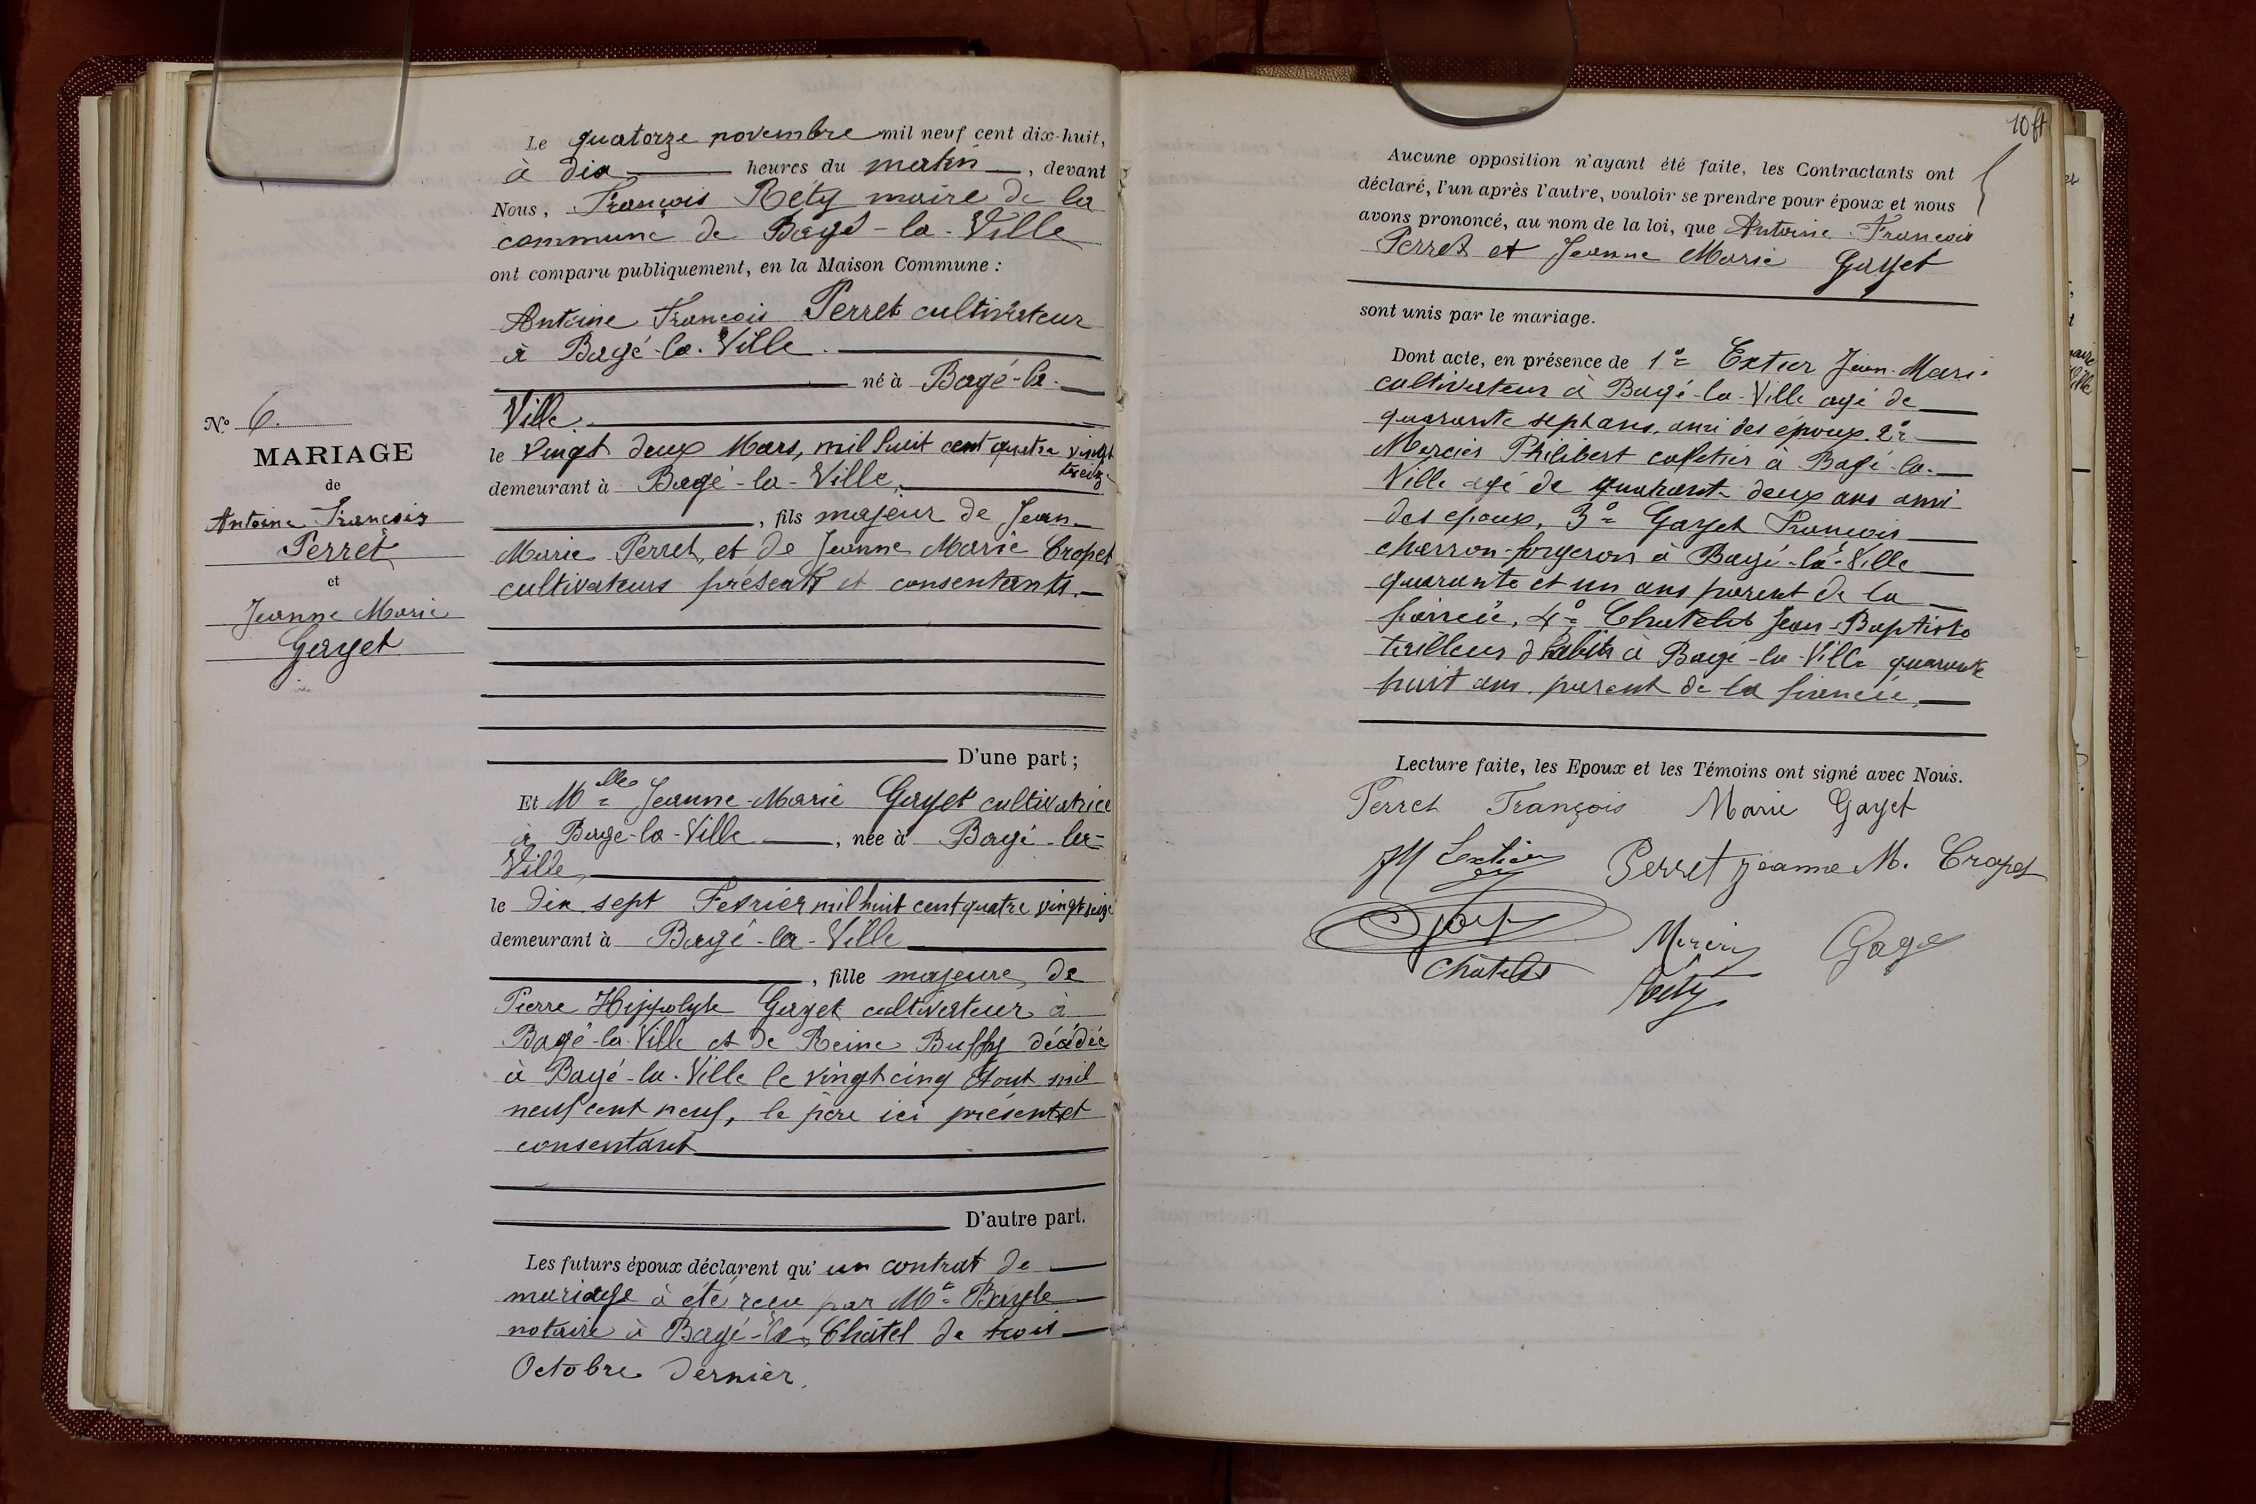 Le quatorze novembre mil neuf cent dix-huit,
à dix heures du matin, devant
Nous, François Réty maire de la
commune de Bagé-la-Ville
ont comparu publiquement, en la Maison Commune :
Antoine François Perret cultivateur
à Bagé-la-Ville
né à Bagé-la-
Ville
le vingt deux Mars, mil huit cent quatre vingt
treize
demeurant à Bagé-la-Ville,
, fils majeur de Jean
Marie Perret, et de Jeanne Marie Cropet
cultivateurs présents et consentants.
D'une part ;
Et Mlle Jeanne-Marie Gayet cultivatrice
à Bagé-la-Ville, née à Bagé-la-
Ville,
le dix sept Fevrier mil huit cent quatre vingt seize
demeurant à Bagé-la-Ville
, fille majeure, de
Pierre Hippolyte Gayet cultivateur à
Bagé-la-Ville et de Reine Buffy décédée
à Bagé-la-Ville le vingt cinq Aout mil
neuf cent neuf, le père ici présent et
consentant
D'autre part.
Les futurs époux déclarent qu'un contrat de
mariage à été reçu par Me Bayle
notaire à Bagé-le-Châtel de trois
Octobre dernier.
No 6.
MARIAGE
de
Antoine François
Perret
et
Jeanne Marie
Gayet
10
Aucune opposition n'ayant été faite, les Contractants ont
déclaré, l'un après l'autre, vouloir se prendre pour époux et nous
avons prononcé, au nom de la loi, que Antoine François
Perret et Jeanne Marie Gayet
sont unis par le mariage.
Dont acte, en présence de 1o Extier Jean-Marie
cultivateur à Bagé-la-Ville agé de
quarante sept ans, ami des époux. 2o
Mercier Philibert cafetier à Bagé-la-
Ville agé de quarante deux ans ami
des epoux, 3o Gayet François
charron-forgeron à Bagé-la-Ville
quarante et un ans parent de la
fiancée, 4o Chatelet Jean-Baptiste
tailleur d'habits à Bagé-la-Ville quarante
huit ans, parent de la fiancée,
Lecture faite, les Epoux et les Témoins ont signé avec Nous.
Perret François Marie Gayet
JM Extier Perret Jeanne M. Cropet
Mercier Gayet
Chatelet Réty